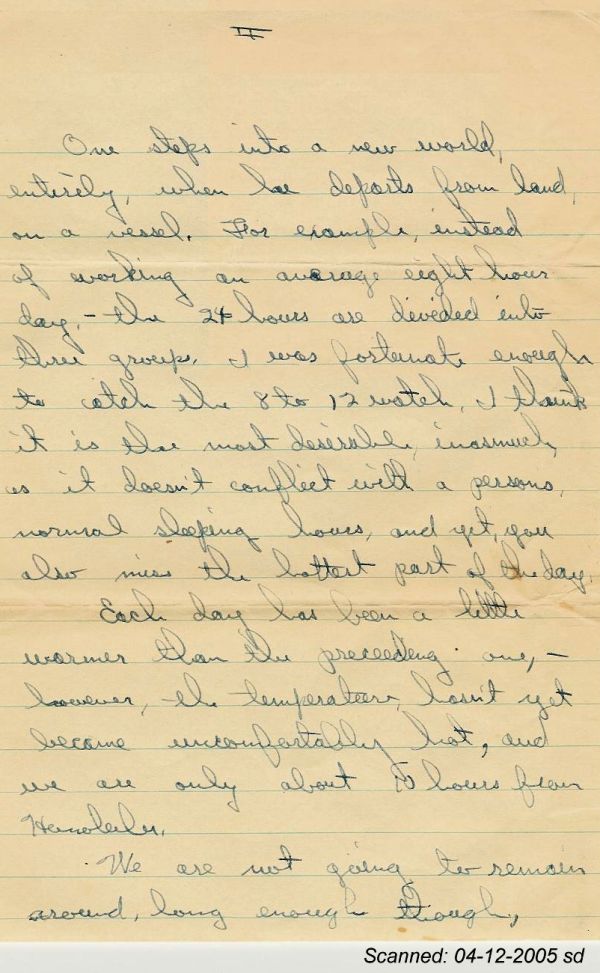 II
One steps into a new world,
entirely, when he departs from land,
on a vessel. For example, instead
of working an average eight hour
day, - the 24 hours are devided into
three groups. I was fortunate enough
to catch the 8 to 12 watch, I think
it is the most desirable, inasmuch,
as it doesn't conflict with a persons,
normal sleeping hours, and yet, you
also miss the hottest part of the day.
Each day has been a little
warmer than the preceeding one, -
however, the temperature, hasn't yet
become uncomfortably hot, and
we are only about hours from
Honolulu.
We are not going to remain
around, long enough though,
Scanned: 04-12-2005 sd